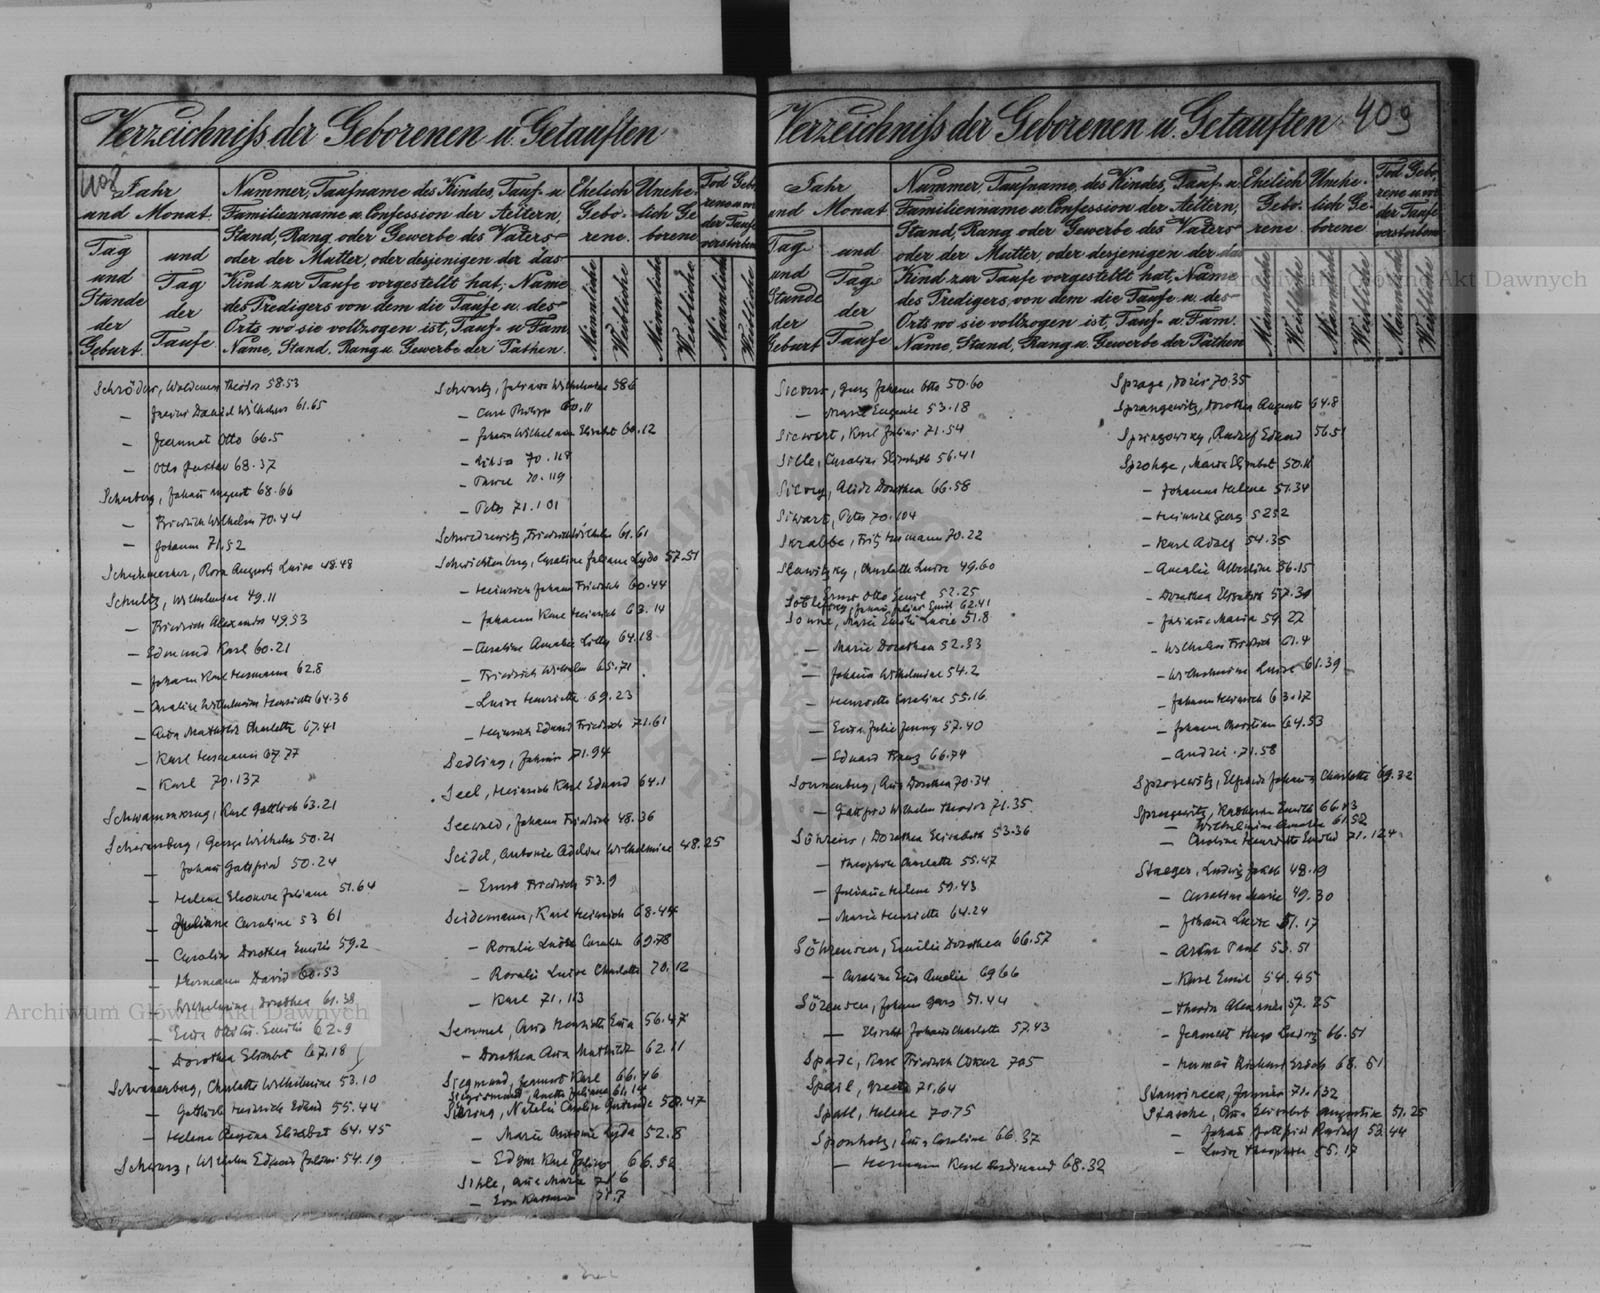 Verzeichniss der Geborenen u. Getauften
408
Jahr
und Monat
Tag
und
Stunde
der
Geburt.
und
Tag
der
Taufe
Nummer, Taufname des Kindes, Tauf- u
Familienname u. Confession der Aeltern,
Stand, Rang oder Gewerbe des Vaters
oder der Mutter, oder desjenigen der das
Kind zur Taufe vorgestellt hat, Name
des Predigers von dem die Taufe u. des
Orts wo sie vollzogen ist, Tauf- u Fam.
Name, Stand, Rang u. Gewerbe der Pathen.
Ehelich
Gebo-
rene.
Unehe-
lich Ge
borene
Tod Gebo
rene u. vor
der Taufe
verstorbene
Männliche
Weibliche
Männliche
Weibliche
Männliche
Weibliche
Schröder, Woldemar Theodor 58.53
— Daniel Wilhelm 61.65
— Jeannot Otto 66.5
— Otto Gustav 68.37
Scheuberg, Johann August 68.66
— Friedrich Wilhelm 70.44
— Johann 71.52
Schuhmacher, Rosa Auguste Luise 48.48
Schultz, Wilhelmine 49.11
— Friedrich Alexander 49.53
— Edmund Karl 60.21
— Johann Karl Hermann 62.8
— Caroline Wilhelmine Henriette 64.36
— Anna Mathilde Charlotte 67.41
— Karl Hermann 67.77
— Karl 70.137
Schwammkrug, Karl Gottlieb 63.21
Schwanenberg, George Wilhelm 50.21
— Johann Gottfried 50.24
— Helene Eleonore Juliane 51.64
— Juliane Caroline 53 61
— Caroline Dorothea Emilie 59.2
— Hermann David 60.53
— Wilhelmine Dorothea 61.38
— Ottilie Emilie 62.9
— Dorothea Elisabet 67.18
Schwanenburg, Charlotte Wilhelmine 53.10
— Gottlieb Heinrich Eduard 55.44
— Helene Regina Elisabet 64.45
Schwarz, Wilhelm 54.19
Schwartz, Johann Wilhelmine 58 6
— Carl Philipp 60.11
— Johann Wilhelmine Elisabet 60.12
— 70.118
— Pawel 70.119
— Peter 71.101
Friedrich Wilhelm 61.61
Schwichtenberg, Caroline Juliane Lydia 57.51
— Heinrich Johann Friedrich 60.44
— Johann Karl Heinrich 63.14
— Caroline Amalie Lilly 64.18
— Friedrich Wilhelm 65.71
— Luise Henriette 69.23
— Heinrich Eduard Friedrich 71.61
Sedling, 71.94
Seel, Heinrich Karl Eduard 64.1
Seewald, Johann Friedrich 48.36
Seidel, Antonie Adeline Wilhelmine 48.25
— Ernst Friedrich 53.9
Seidemann, Karl Heinrich 68.44
— Rosalie Luise Caroline 69.78
— Rosalie Luise Charlotte 70.12
— Karl 71.113
Semmel, Anna Henriette Emma 56.47
— Dorothea Anna Mathilde 62.11
Siegmund, Jeannot Karl 66.46
Juliane 61.14
Natalie Caroline 50.47
— Marie Antonie Lyda 52.8
— Edgar Karl Julius 66.92
Sihle, Anna Maria 71 6
— 71.7
Verzeichniss der Geborenen u. Getauften
409
Jahr
und Monat
Tag
und
Stunde
der
Geburt
und
Tag
der
Taufe
Nummer, Taufname, des Kindes, Tauf- u
Familienname u. Confession der Aeltern,
Stand, Rang oder Gewerbe des Vaters
oder der Mutter, oder desjenigen der das
Kind zur Taufe vorgestellt hat, Name
des Predigers, von dem die Taufe u. des
Orts wo sie vollzogen ist, Tauf- u Fam.
Name, Stand, Rang u. Gewerbe der Pathen
Ehelich
Gebo-
rene
Unehe-
lich Ge-
borene
Tod Gebo
rene u. vor
der Taufe
verstorbene
Männliche
Weibliche
Männliche
Weibliche
Männliche
Weibliche
Sievers, Georg Johann Otto 50.60
— Eugenie 53.18
Siewart, Karl Julius 71.54
Sille, Caroline Elisabeth 56.41
Alide Dorothea 66.58
Siwart, Peter 70.104
Skrabbe, Fritz Hermann 70.22
Slawitzky, Charlotte Luise 49.60
Ernst Otto Emil 52.25
Johann Julius Emil 62.41
Sonne, Marie Emilie Lucie 51.8
— Marie Dorothea 52.33
— Johann Wilhelmine 54.2
— Henriette Caroline 55.16
— Emma Julie Jenny 57.40
— Eduard Franz 66.74
Sonnenberg, Anna Dorothea 70.34
— Gottfried Wilhelm Theodor 71.35
Söhrens, Dorothea Elisabeth 53.36
— Theophile Charlotte 55.47
— Juliane Helene 59.43
— Marie Henriette 64.24
Söhrensen, Emilie Dorothea 66.57
— Caroline Amalie 69 66
Sörensen, Johann 51.44
— Elisabet Johann Charlotte 57.43
Spade, Karl Friedrich Oskar 70.5
71.64
Spall, Helene 70 75
Sponholz, Emma Caroline 66.37
— Hermann Karl Ferdinand 68.32
Sprage, 70.35
Sprangewitz, Dorothea Auguste 64.8
Rudolf Eduard 56.51
Sprohge, Maria Elisabet 50.11
— Johanna Helene 51.34
— Heinrich Georg 52 52
— Karl Adolf 54.35
— Amalie Albertine 56.15
— Dorothea Elisabet 57.30
— Juliane Maria 59.22
— Wilhelm Friedrich 61.4
— Wilhelmine Luise 61.39
— Johann Heinrich 63.17
— Johann Christian 64.53
— Andrei 71.58
Sprogewitz, Elfriede Johanna Charlotte 69.32
66.13
— Wilhelmine Amalie 61.52
— Caroline Henriette Emilie 71.124
Staeger, Ludwig Jakob 48.19
— Caroline Marie 49.30
— Johann Luise 51.17
— Artur Paul 53.51
— Karl Emil 54.45
— Theodor Alexander 57.25
— Jeannot Hugo Ludwig 66.51
— Herman Richard 68.51
71.132
Stasche, Anna Elisabet Augustine 51.25
— Johann Gottfried Rudolf 53.44
— Luise Theophile 55.17
Archiwum Główne Akt Dawnych
Archiwum Główne Akt Dawnych